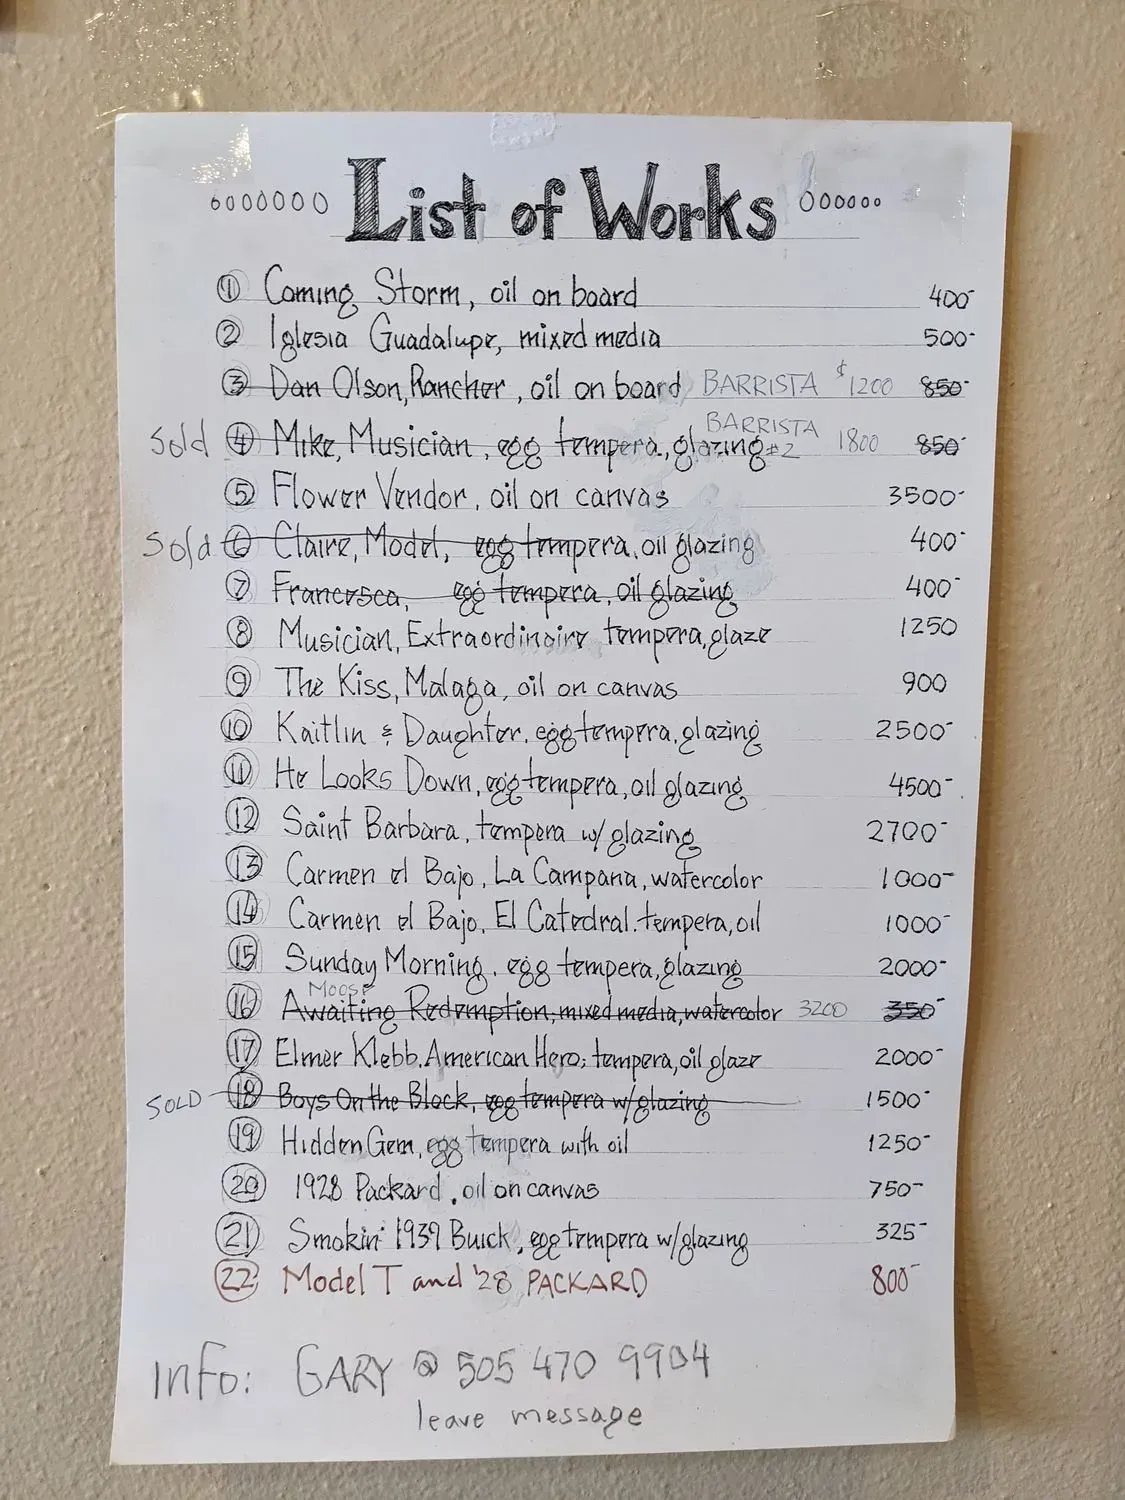 List of Works
① Coming Storm, oil on board 400-
② Iglesia Guadalupe, mixed media 500-
③ Dan Olson, Rancher, oil on board BARRISTA $1200 850-
Sold ④ Mike, Musician, egg tempera, glazing BARRISTA #2 1800 850-
⑤ Flower Vendor, oil on canvas 3500-
Sold ⑥ Claire, Model, egg tempera, oil glazing 400-
⑦ Francesca, egg tempera, oil glazing 400-
⑧ Musician, Extraordinaire tempera, glaze 1250
⑨ The Kiss, Malaga, oil on canvas 900
⑩ Kaitlin & Daughter, egg tempera, glazing 2500-
⑪ He Looks Down, egg tempera, oil glazing 4500-
⑫ Saint Barbara, tempera w/ glazing 2700-
⑬ Carmen el Bajo, La Campana, watercolor 1000-
⑭ Carmen el Bajo, El Catedral. tempera, oil 1000-
⑮ Sunday Morning, egg tempera, glazing 2000-
Moose
⑯ Awaiting Redemption, mixed media, watercolor 3200 350-
⑰ Elmer Klebb. American Hero; tempera, oil glaze 2000-
SOLD ⑱ Boys On the Block, egg tempera w/ glazing 1500-
⑲ Hidden Gem, egg tempera with oil 1250-
⑳ 1928 Packard, oil on canvas 750-
㉑ Smokin' 1937 Buick, egg tempera w/ glazing 325-
㉒ Model T and '28 PACKARD 800-
Info: GARY @ 505 470 9904
leave message